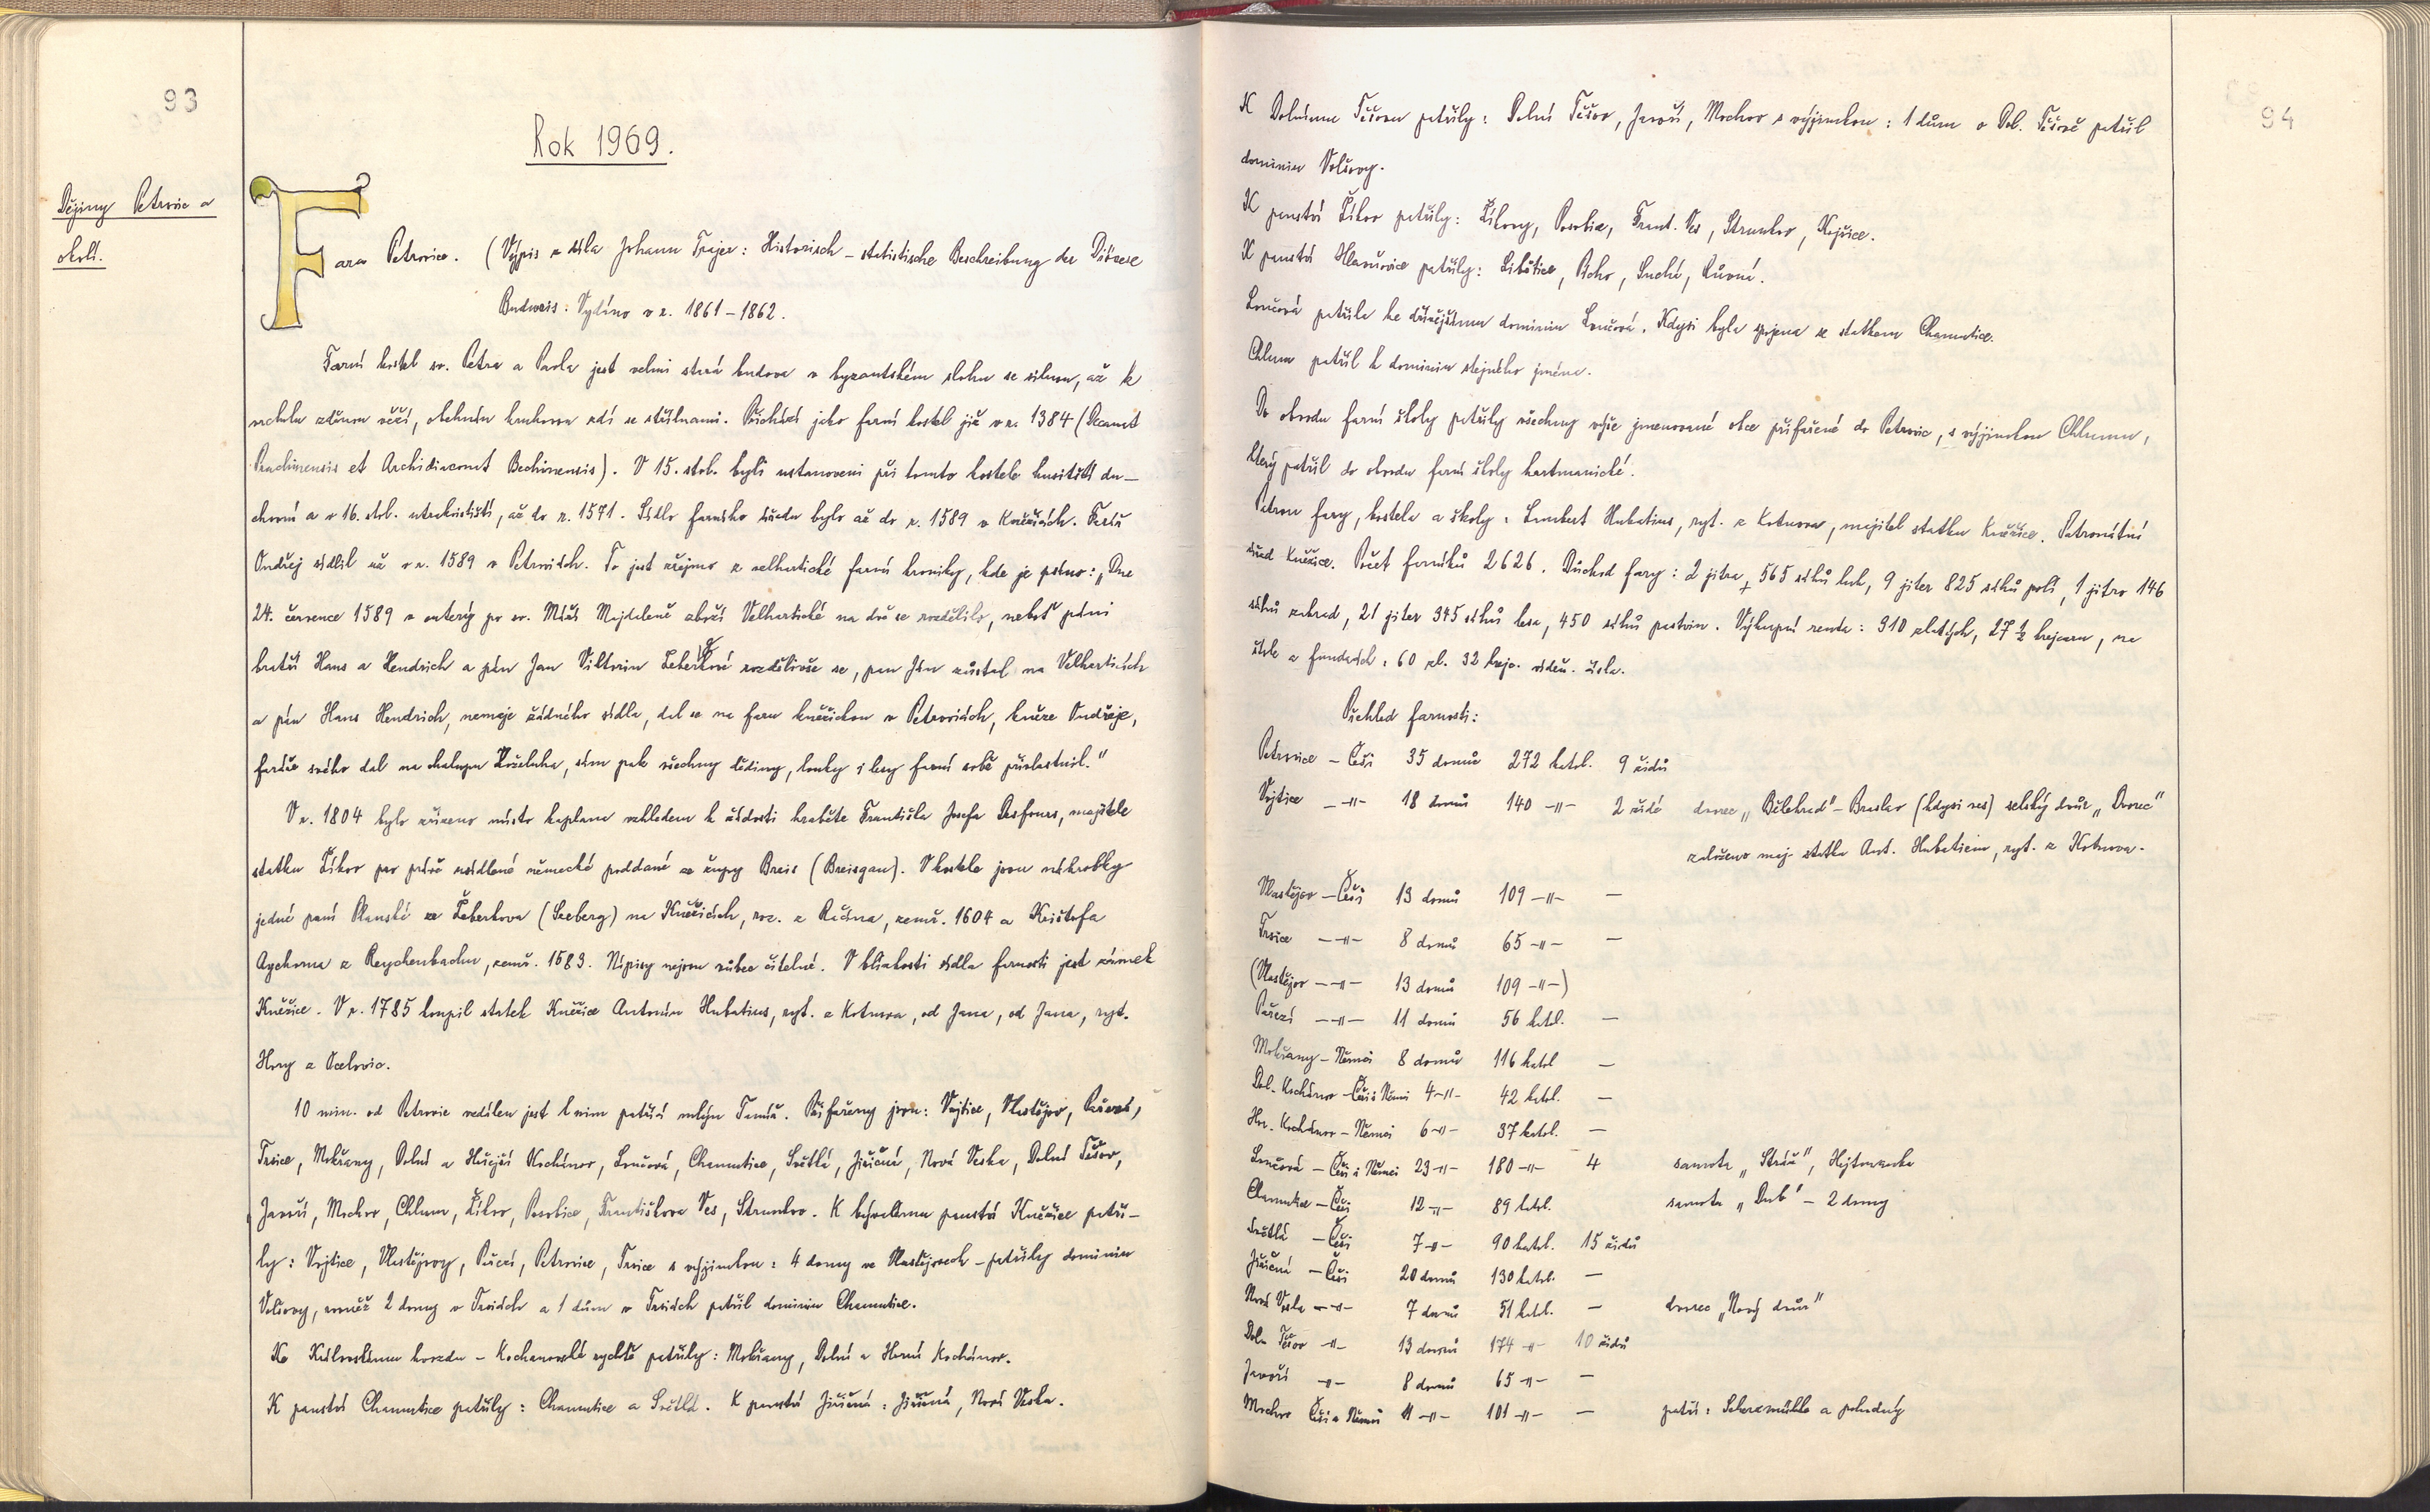 93
Rok 1969.
Dějiny Petrovic a
okolí.
Fara Petrovice. (Výpis z díla Johann Trajer: Historisch – statistische Beschreibung der Diözese
Budweis: Vydáno v r. 1861 – 1862.
Farní kostel sv. Petra a Pavla jest velmi stará budova v byzantském slohu se silnou, až k
vrcholu zděnou věží, obehnán kruhovou zdí se střílnami. Přichází jako farní kostel již v r. 1384 (Decanat
Prachinensis et Archidiaconat Bechinensis). V 15. stol. byli ustanoveni při tomto kostele husitští du-
chovní a v 16. stol. utrakvističtí, až do r. 1571. Sídlo farního úřadu bylo až do r. 1589 v Kněžicích. Farář
Ondřej sídlil už v r. 1589 v Petrovicích. To jest zřejmo z velhartické farní kroniky, kde je psáno: „Dne
24. července 1589 v outerý po sv. Máří Majdaleně zboží Velhartické na dvé se rozdělilo, neboť páni
bratři Hans a Hendrich a pán Jan Viktorin Žeberkové rozdělivše se, pan Ján zůstal na Velharticích
a pán Hans Hendrich, nemaje žádného sídla, dal se na faru kněžickou v Petrovicích, kněze Ondřeje,
faráře svého dal na chalupu Koželuha, sám pak všechny dědiny, louky i lesy farní sobě přivlastnil."
V r. 1804 bylo zřízeno místo kaplana vzhledem k žádosti hraběte Františka Josefa Desfours, majitele
statku Žikov pro právě usídlené německé poddané ze župy Breis (Breisgau). V kostele jsou náhrobky
jedné paní Planské ze Žeberkova (Seeberg) na Kněžicích, roz. z Říčna, zemř. 1604 a Krištofa
Aychorna z Reychenbachu, zemř. 1683. Nápisy nejsou vůbec čitelné. V blízkosti sídla farnosti jest zámek
Kněžice. V r. 1785 koupil statek Kněžice Antonín Hubatius, ryt. z Kotnova, od Jana, od Jana, ryt.
Hory z Ocelovic.
10 min. od Petrovic vzdálen jest k nim patřící mlýn Tamíř. Přifařeny jsou: Vojtice, Vlastějov, Pařezí,
Trsice, Mokřany, Dolní a Hořejší Kochánov, Loučová, Chamutice, Světlá, Jiřičná, Nová Veska, Dolní Těšov,
Javoří, Mochov, Chlum, Žikov, Posobice, Františkova Ves, Strunkov. K bývalému panství Kněžice patři-
ly: Vojtice, Vlastějovy, Pařezí, Petrovice, Trsice s výjimkou: 4 domy ve Vlastějovech – patřily dominiu
Volšovy, rovněž 2 domy v Trsicích a 1 dům v Trsicích patřil dominiu Chamutice.
Ke Královskému hvozdu – Kochanovské rychtě patřily: Mokřany, Dolní a Horní Kochánov.
K panství Chamutice patřily: Chamutice a Světlá. K panství Jiřičná: Jiřičná, Nová Veska.
94
K Dolnímu Těšovu patřily: Dolní Těšov, Javoří, Mochov s výjimkou: 1 dům v Dol. Těšově patřil
dominiu Volšovy.
K panství Žikov patřily: Žikovy, Posobice, Frant. Ves, Strunkov, Kojšice.
K panství Hlavňovice patřily: Libětice, Pích, Suché, Rovná.
Loučová patřila ke zdějšímu dominiu Loučová. Kdysi byla spojena se statkem Chamutice.
Chlum patřil k dominiu stejného jména.
Do obvodu farní školy patřily všechny výše jmenované obce přifařené do Petrovic, s výjimkou Chlumu,
který patřil do obvodu farní školy hartmanické.
Patron fary, kostela a školy: Lambert Hubatius, ryt. z Kotnova, majitel statku Kněžice. Patronátní
úřad Kněžice. Počet farníků 2626. Důchod fary: 2 jitra, 565 sáhů luk, 9 jiter 825 sáhů polí, 1 jitro 146
sáhů zahrad, 21 jiter 345 sáhů lesa, 450 sáhů pastvin. Výkupní renta: 310 zlatých, 27 ½ krejcaru, ze
štol a fundacích: 60 zl. 32 krejc. vídeň. čísla.
Přehled farnosti:
Petrovice – Češi 35 domů 272 katol. 9 židů
Vojtice –"– 18 domů 140 –"– 2 židé dvorec „Bělehrad" – Brusko (kdysi ves) selský dvůr „Dvorec"
založeno maj. statku Ant. Hubatiem, ryt. z Kotnova.
Vlastějov – Češi 13 domů 109 –"– –
Trsice –"– 8 domů 65 –"– –
(Vlastějov –"– 13 domů 109 –"–)
Pařezí –"– 11 domů 56 katol. –
Mokřany – Němci 8 domů 116 katol –
Dol. Kochánov – Češi i Němci 4 –"– 42 katol. –
Hor. Kochánov – Němci 6 –"– 37 katol. –
Loučová – Češi i Němci 23 –"– 180 –"– 4 samota „Stráž", Hejtmanka
Chamutice – Češi 12 –"– 89 katol. samota „Dub" – 2 domy
Světlá – Češi 7 –"– 90 katol. 15 židů
Jiřičná – Češi 20 domů 130 katol. –
Nová Veska –"– 7 domů 51 katol. – dvorec „Nový dvůr"
Dol. Těšov –"– 13 domů 174 –"– 10 židů
Javoří –"– 8 domů 65 –"– –
Mochov Češi a Němci 11 –"– 101 –"– – patří: Scherzmühle a pohodný